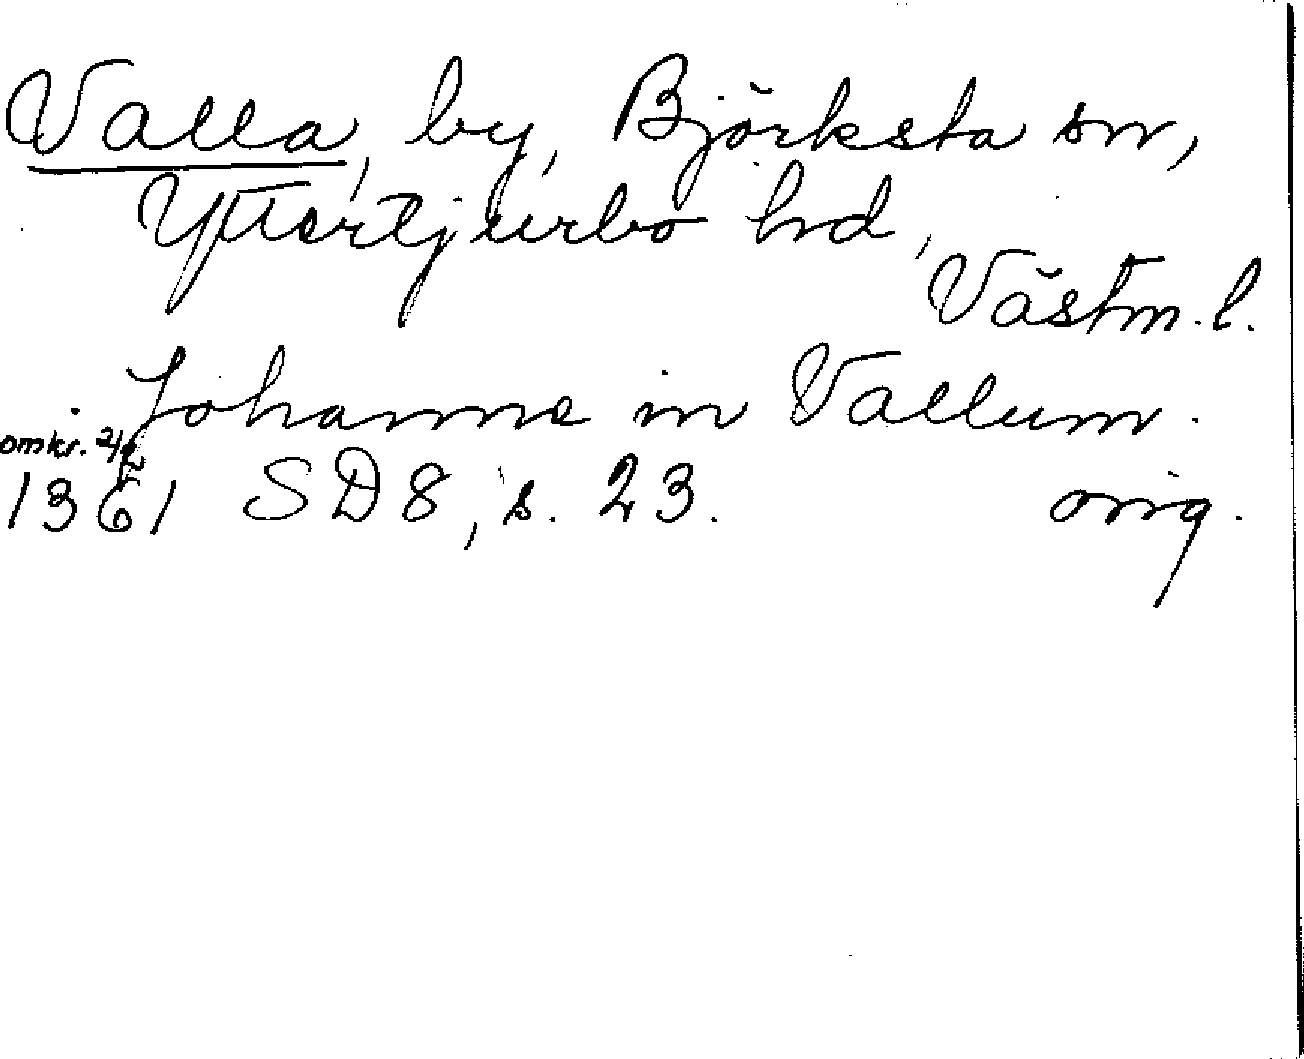 Valla, by, Björksta sn,
Yttertjurbo hd,
Västm. l.
Johanne in Vallum.
omkr. 2/2
1361 SD 8, s. 23. orig.